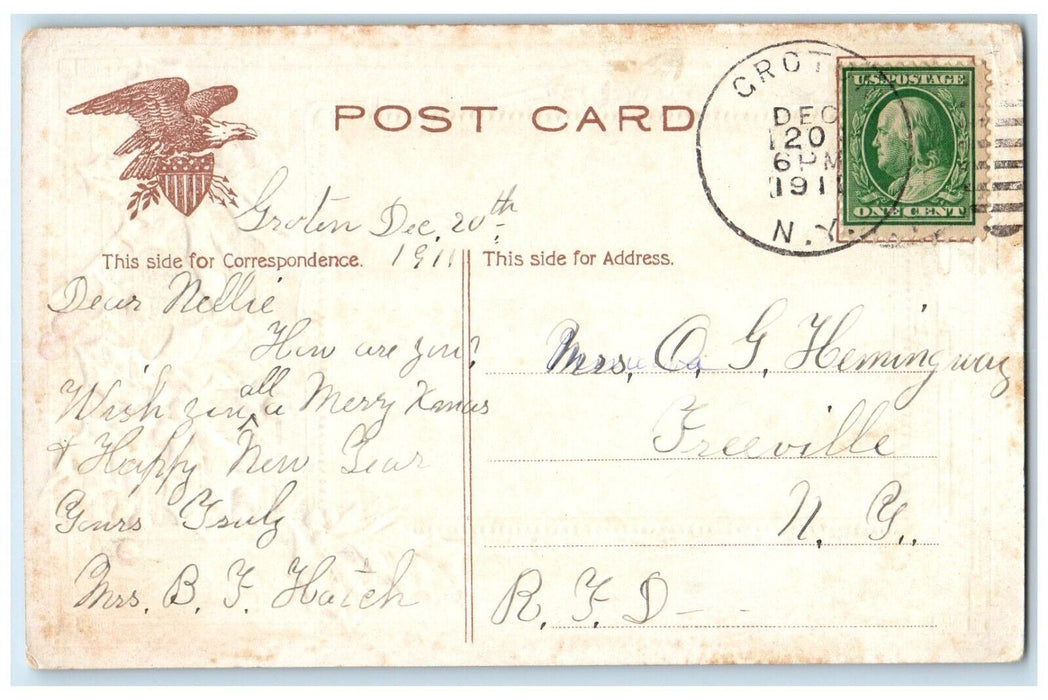 POST CARD
GROTON
DEC
20
6 PM
1911
N.Y.
U.S. POSTAGE
ONE CENT
Groton Dec. 20th
1911
This side for Correspondence.
This side for Address.
Dear Nellie
How are you?
Wish you all a Merry Xmas
& Happy New Year
Yours Truly
Mrs. B. F. Hatch
Mrs. O. G. Hemingway
Freeville
N. Y.
R. F. D